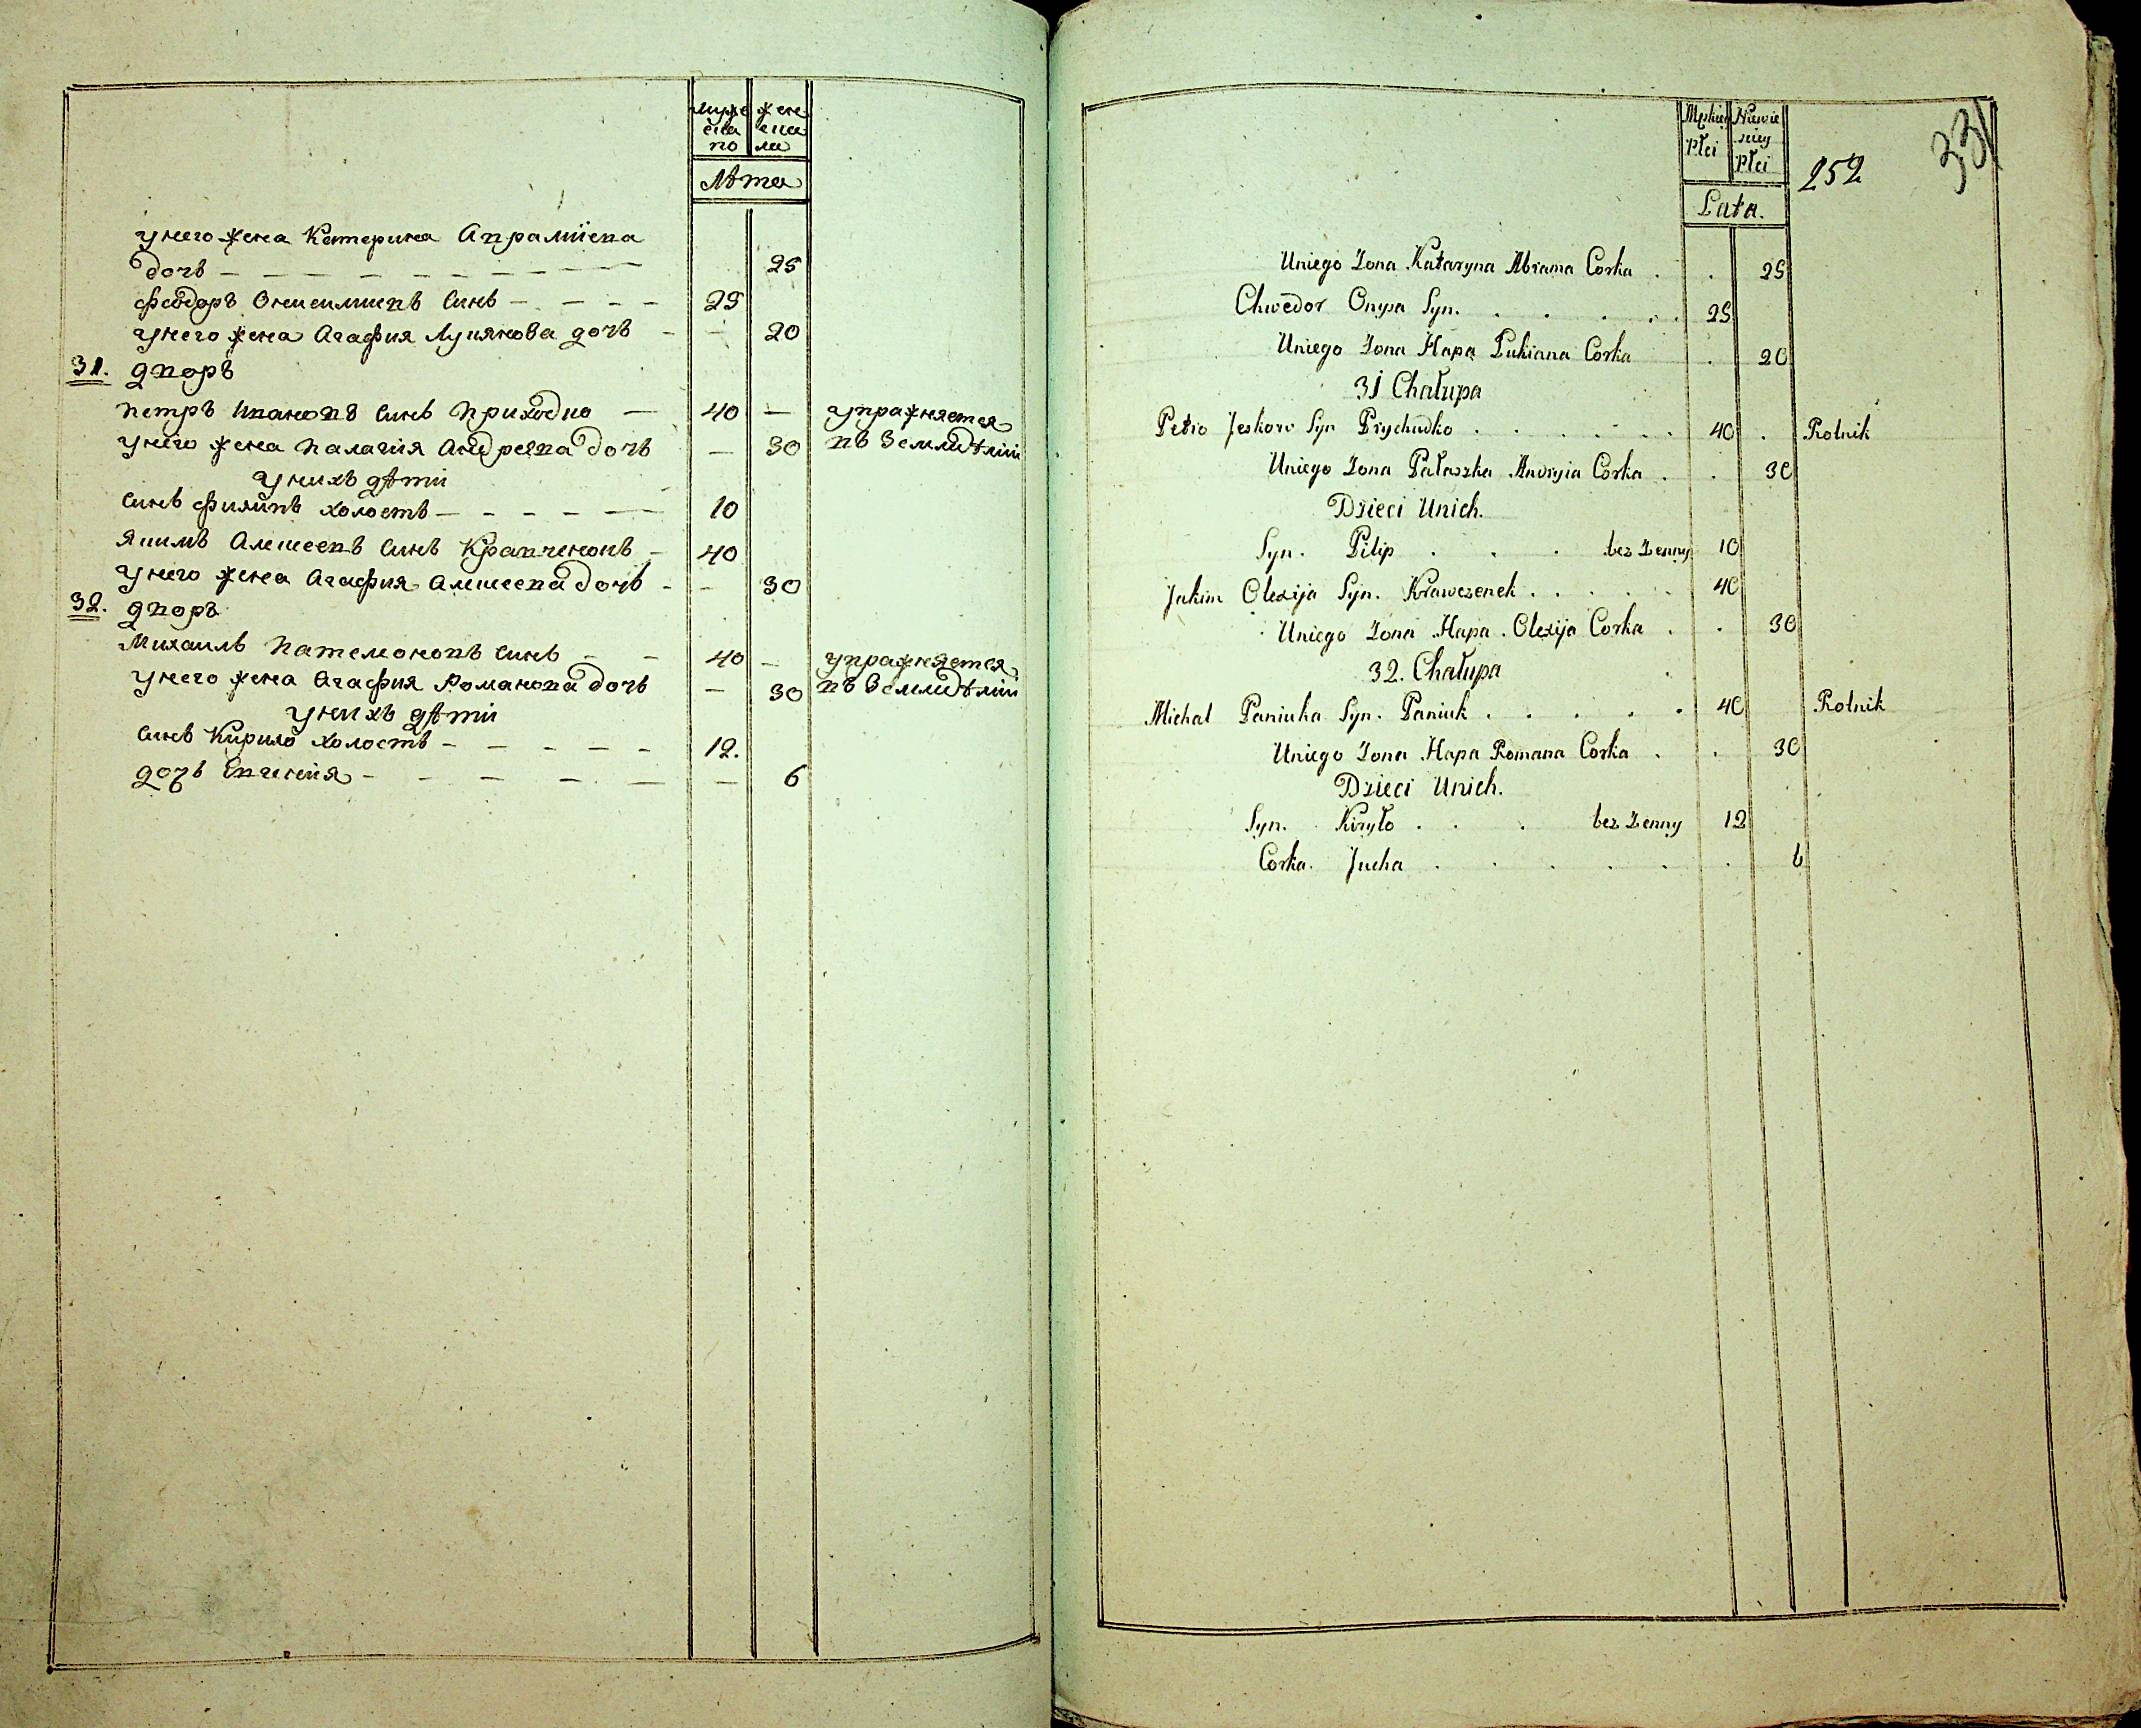 Мужеска по
Женска ли
Лѣта
у него жена Катерина Апрамиева
дочь 25
Феодоръ Онисимиевъ синъ 25
у него жена Агафия Лукянова дочь 20
31. дворъ
Петръ Ивановъ синъ Приходко 40 упражняется
у него жена Палагия Андреева дочь 30 въ земледѣлии
у нихъ дѣти
синъ Филипъ холостъ 10
Якимъ Алексеевъ синъ Кравченковъ 40
у него жена Агафия Алексеева дочь 30
32. дворъ
Михаилъ Пателемоновъ синъ 40 упражняется
у него жена Агафия Романова дочь 30 въ земледѣлии
у нихъ дѣти
синъ Кирило холостъ 12.
дочь Евгения 6
Męskiej Płci
Niewieściey Płci
Lata.
252
331
Uniego Zona Kataryna Abrama Corka 25
Chwedor Onysa Syn. 25
Uniego Zona Hapa Lukiana Corka 20
31 Chałupa
Petro Jeskow Syn Prychudko 40 Rolnik
Uniego Zona Pałaszka Andryia Corka 30
Dzieci Unich.
Syn. Pilip bez Zenny 10
Jakim Olexija Syn. Krawczenek 40
Uniego Zona Hapa Olexija Corka 30
32. Chałupa
Michał Paniuka Syn. Paniuk 40 Rolnik
Uniego Zona Hapa Romana Corka 30
Dzieci Unich.
Syn. Kiryło bez Zenny 12
Corka. Jucha 6